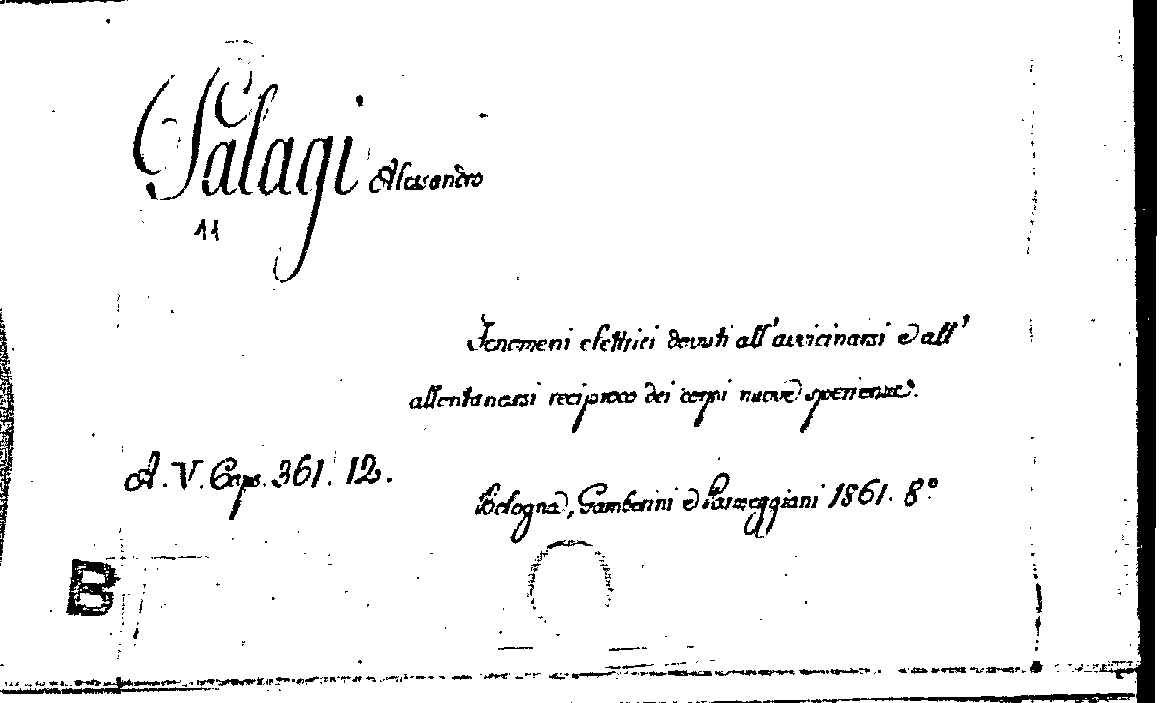 Palagi Alessandro
11
Fenomeni elettrici devuti all'avvicinarsi e all'
allontanarsi reciproco dei corpi nuove sperienze.
A. V. Caps. 361. 12.
Bologna, Gamberini e Parmeggiani 1861. 8°
B